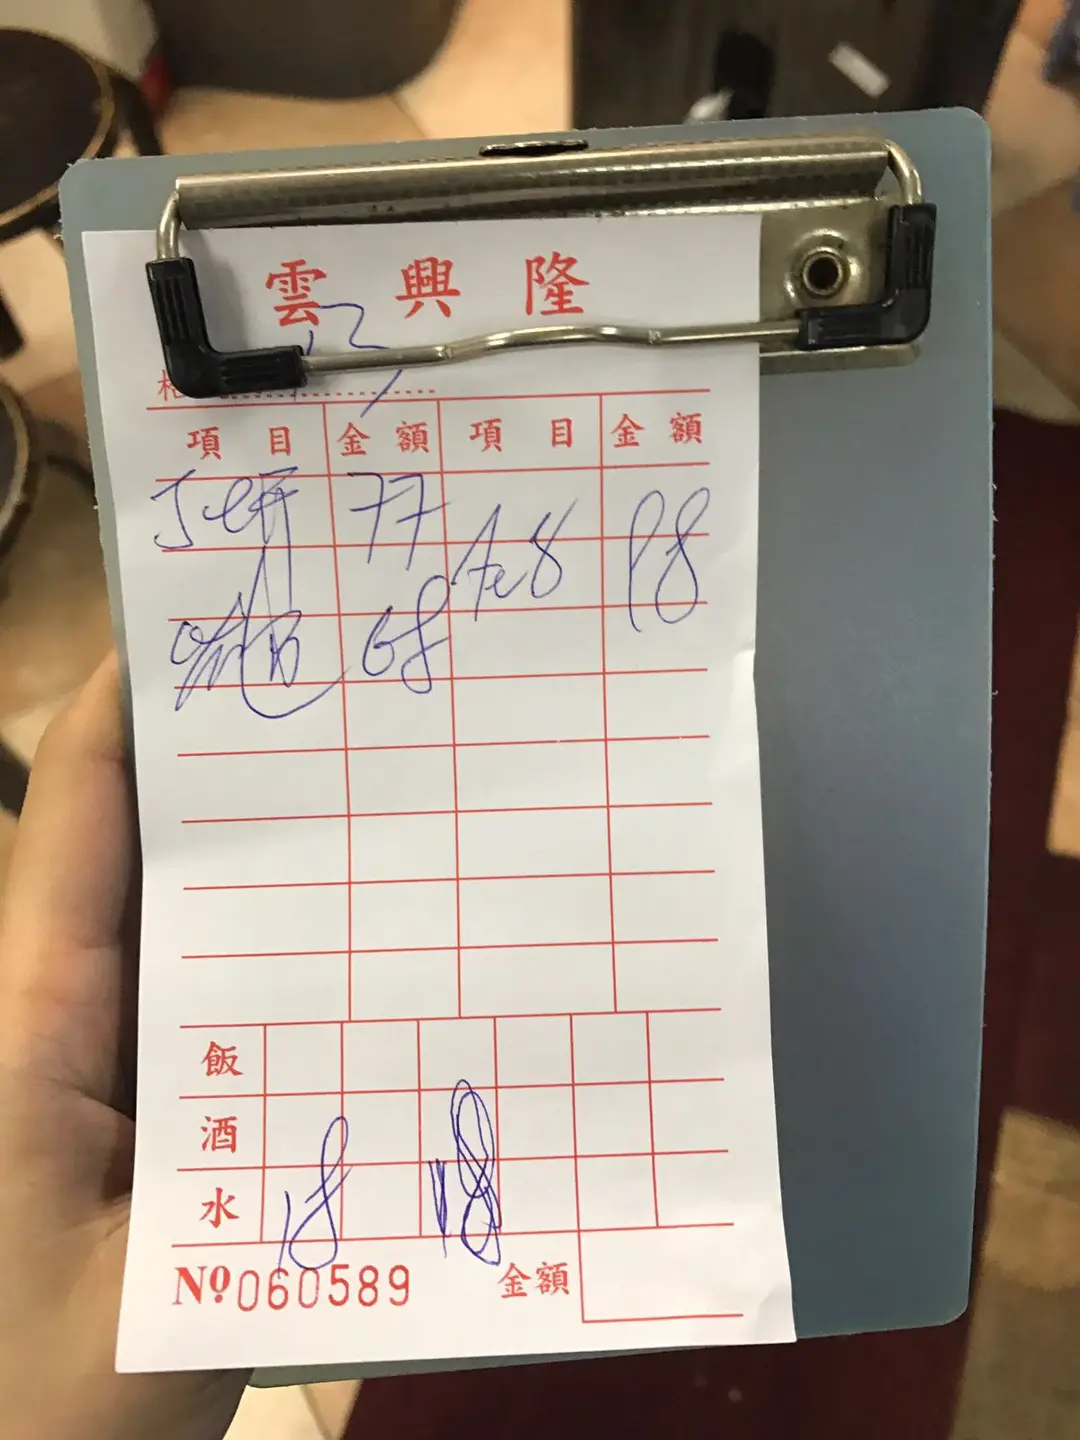 雲興隆
項目 金額 項目 金額
77
68
Ac8 98
飯
酒
水 18 18
No 060589 金額